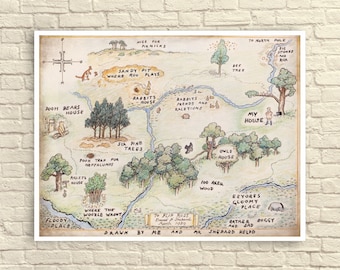 NICE FOR
PIKNICKS
TO NORTH POLE
BIG
STONES
AND
ROX
BEE
TREE
SANDY PIT
WHERE ROO PLAYS
RABBITS
HOUSE
RABBITS
FRENDS AND
RELETIONS
POOH BEARS
HOUSE
MY
HOUSE
SIX PINE
TREES
OWLS
HOUSE
POOH TRAP FOR
HEFFALUMPS
PIGLETS
HOUSE
100 AKER
WOOD
WHERE THE
WOOZLE WASNT
EEYORES
GLOOMY
PLACE
FLOODY
PLACE
RATHER BOGGY
AND SAD
DRAWN BY ME AND MR SHEPARD HELPD